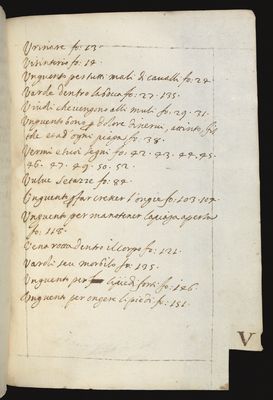 Urinare fo: 13
Vesinterio fo: 14.
Unguento per tutti mali di cavalli fo: 24.
Varole dentro la bocca fo: 27. 135.
Vitudi che vengono alli muli fo: 29. 31.
Unguento bono a dolore di nervi, attinto,
che ed ad ogni piaga fo: 38.
Vermi e suoi segni fo: 42. 43. 44. 45.
46. 47. 49. 50. 52.
Vulve fo: 84.
Unguento p far crescer l'ongie fo: 103. 104.
Unguento per mantener la piaga aperta
fo: 118.
Vena rotta dentro il corpo fo: 121.
Varoli seu morbilo fo: 135.
Unguento per li piedi forti fo: 146.
Unguento per ongere li piedi fo: 151.
V